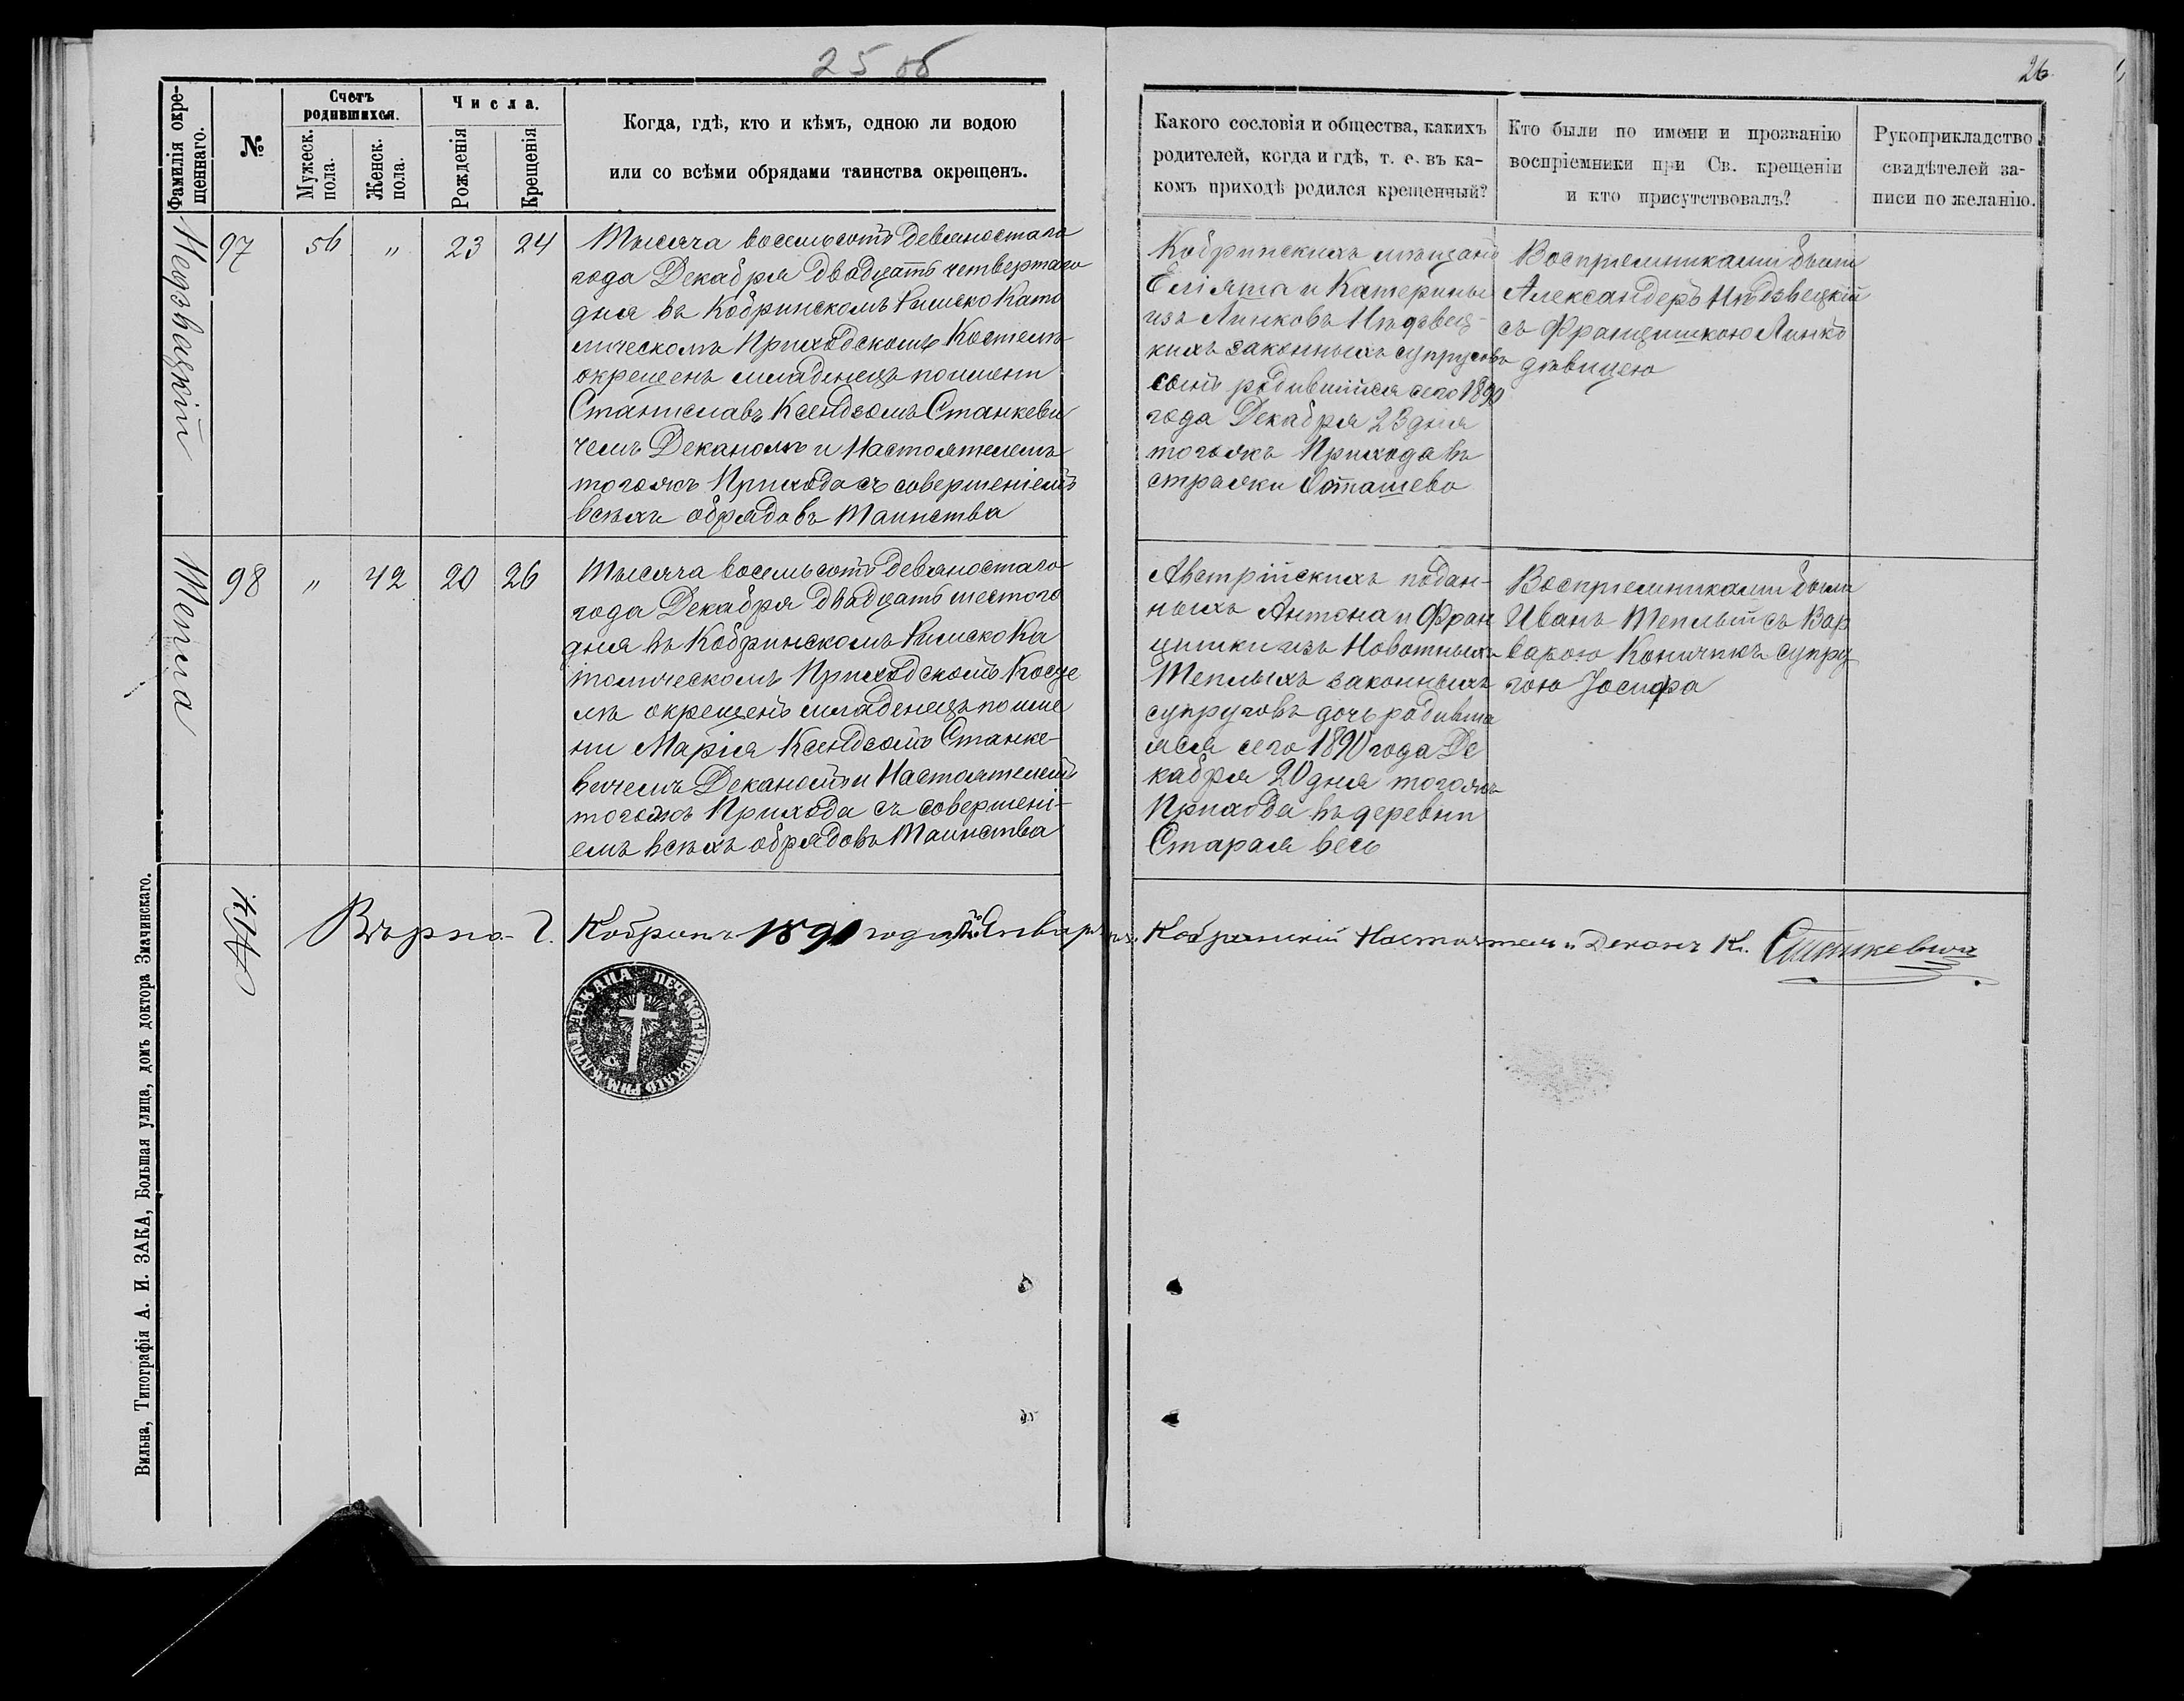 25 об
26
Фамилія окре-
щеннаго.
№
Счетъ
родившихся.
Мужеск.
пола.
Женск.
пола.
Числа.
Рожденія
Крещенія
Когда, гдѣ, кто и кѣмъ, одною ли водою
или со всѣми обрядами таинства окрещенъ.
Какого сословія и общества, какихъ
родителей, когда и гдѣ, т. е. въ ка-
комъ приходѣ родился крещенный?
Кто были по имени и прозванію
воспріемники при Св. крещеніи
и кто присутствовалъ?
Рукоприкладство
свидѣтелей за-
писи по желанію.
97
56
"
23
24
Тысяча восемьсотъ девяностаго
года Декабря двадцать четвертаго
дня въ Кобринскомъ Римско Като
лическомъ Приходскомъ Костелѣ
окрещенъ младенецъ по имени
Станиславъ Ксендзомъ Станкеви
чемъ Деканомъ и Настоятелемъ
тогожъ Прихода съ совершеніемъ
всѣхъ обрядовъ Таинства
Кобринскихъ мѣщанъ
и Катерины
изъ Линковъ Нѣдзвец-
кихъ законныхъ супруговъ
сынъ родившійся сего 1890
года Декабря 23 дня
тогожъ Прихода въ
стражки
Воспріемниками были
Александеръ Нѣдзвецкій
съ Францишкою Линко
дѣвицею
Тепла
98
"
42
20
26
Тысяча восемьсотъ девяностаго
года Декабря двадцать шестого
дня въ Кобринскомъ Римско Ка
толическомъ Приходскомъ Косте
лѣ окрещенъ младенецъ по име
ни Марія Ксендзомъ Станке-
вичемъ Деканомъ и Настоятелемъ
тогожъ Прихода съ совершені-
емъ всѣхъ обрядовъ Таинства
Австрійскихъ подан-
ныхъ Антона и Фран
цишки изъ Новотныхъ
Теплыхъ законныхъ
супруговъ дочь родивша
яся сего 1890 года Де
кабря 20 дня тогожъ
Прихода въ деревни
Старая весь
Воспріемниками были
Иванъ Теплый съ Вар
варою супру
гою Іосифа
Вѣрно. Г. Кобринъ 1891 года Января Кобринскій Настоятель и Деканъ К. Станкевичъ
Вильна, Типографія А. И. ЗАКА, Большая улица, домъ доктора Змачинскаго.